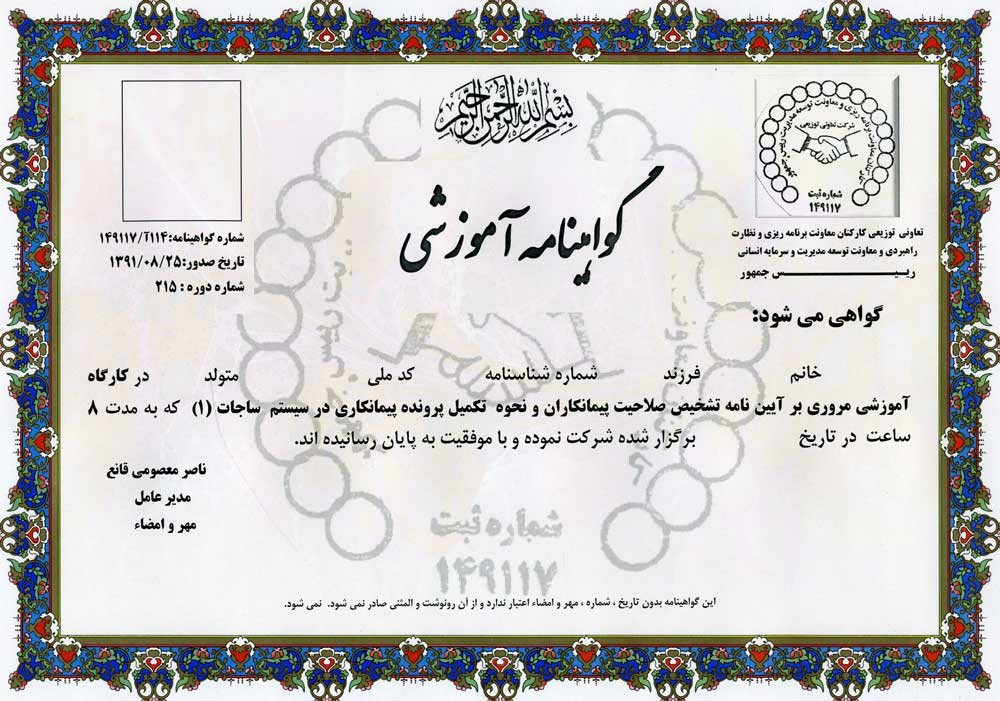 بسم الله الرحمن الرحیم
شرکت تعاونی توزیعی
شماره ثبت
۱۴۹۱۱۷
تعاونی توزیعی کارکنان معاونت برنامه ریزی و نظارت
راهبردی و معاونت توسعه مدیریت و سرمایه انسانی
ریـــــس جمهور
گواهینامه آموزشی
شماره گواهینامه:۱۱۴آ/۱۴۹۱۱۷
تاریخ صدور:۱۳۹۱/۰۸/۲۵
شماره دوره : ۲۱۵
گواهی می شود:
خانم فرزند شماره شناسنامه کد ملی متولد در کارگاه
آموزشی مروری بر آیین نامه تشخیص صلاحیت پیمانکاران و نحوه تکمیل پرونده پیمانکاری در سیستم ساجات (۱) که به مدت ۸
ساعت در تاریخ برگزار شده شرکت نموده و با موفقیت به پایان رسانیده اند.
ناصر معصومی قانع
مدیر عامل
مهر و امضاء
شماره ثبت
۱۴۹۱۱۷
این گواهینامه بدون تاریخ ، شماره ، مهر و امضاء اعتبار ندارد و از آن رونوشت و المثنی صادر نمی شود. نمی شود.